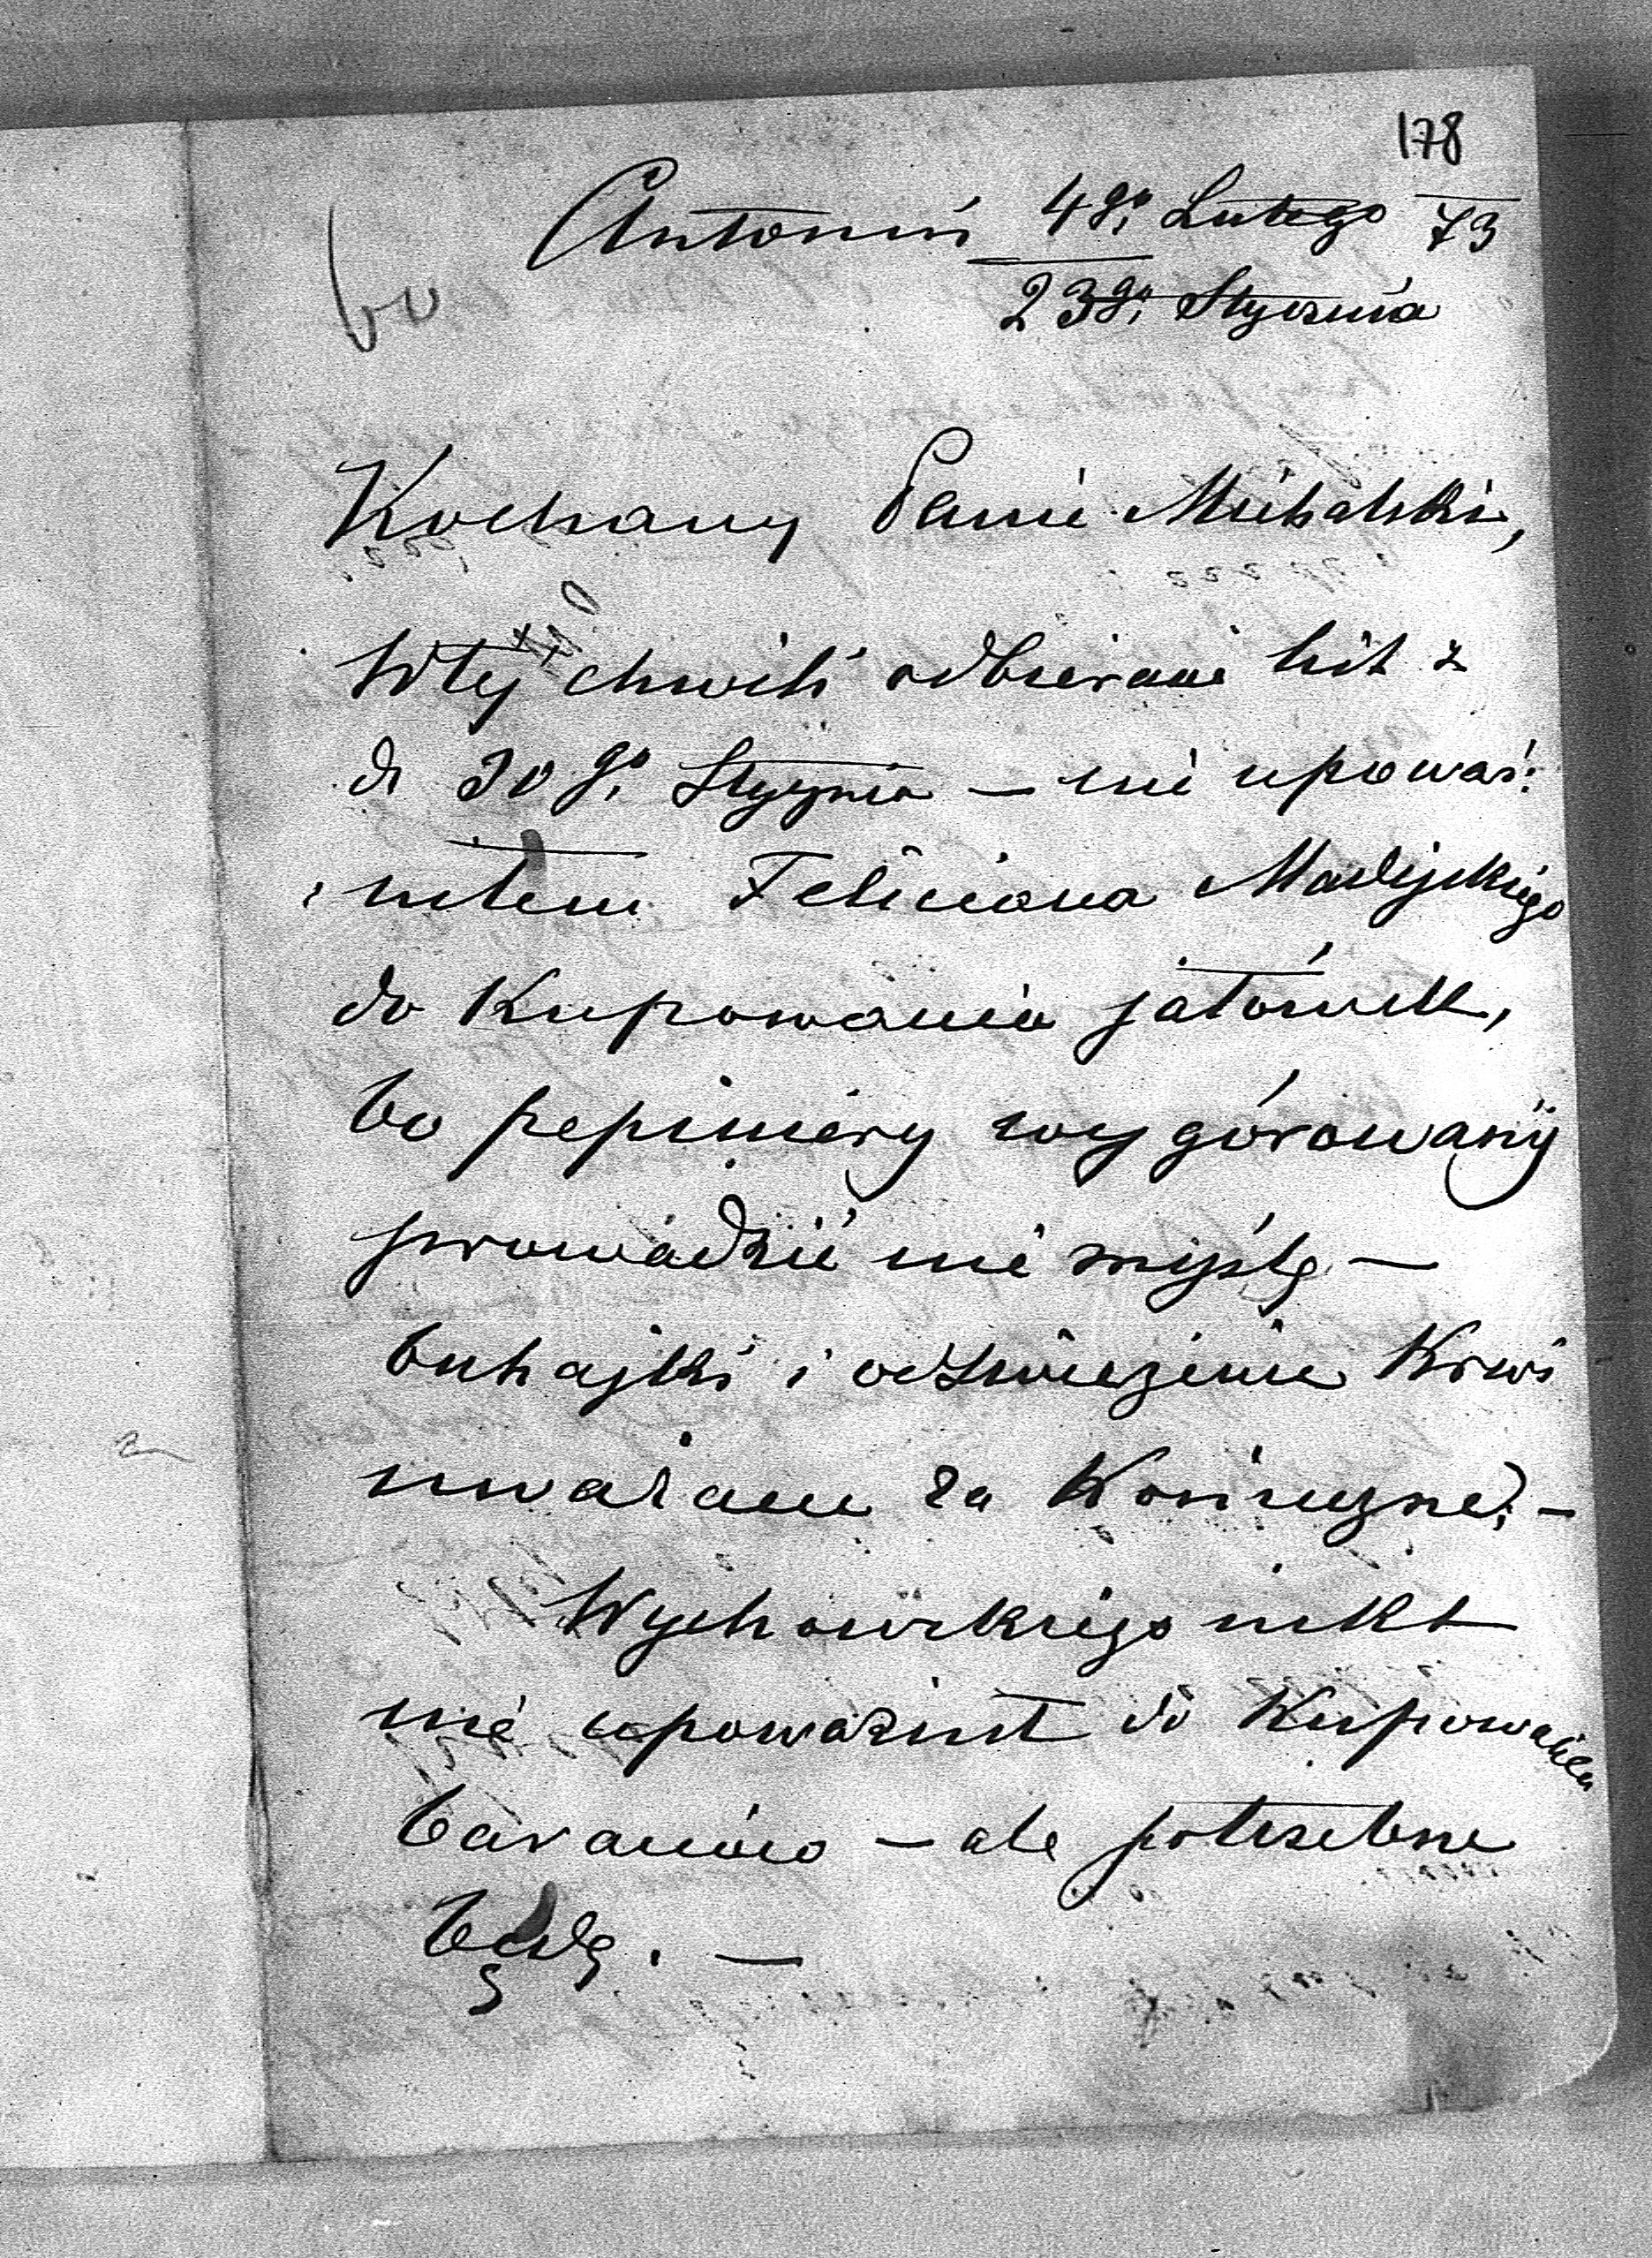 178
Antonin 4go Lutego 73
23go Stycznia
Kochany Panie Michalski,
W tej chwili odbieram list z
d. 30go Stycznia — nie upoważ:
niłem Feliciana Madejskiego
do kupowania jałówek,
bo pepiniery wygórowanej
prowadzić nie myślę —
buhajki i odświeżenie krwi
uważam za konieczne. —
Wychowskiego nikt
nie upoważnił do kupowania
baranów — ale potrzebne
będą. —